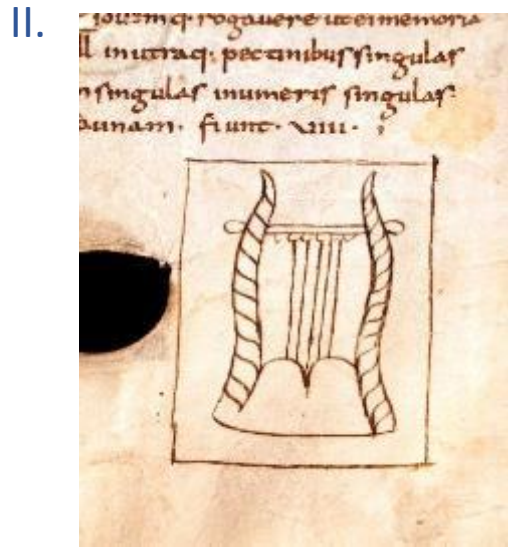 II.
iouemq; rogauere utei memoria
in utraq; pectinibus singulas
singulas inumeris singulas.
unam. fiunt. viiii.